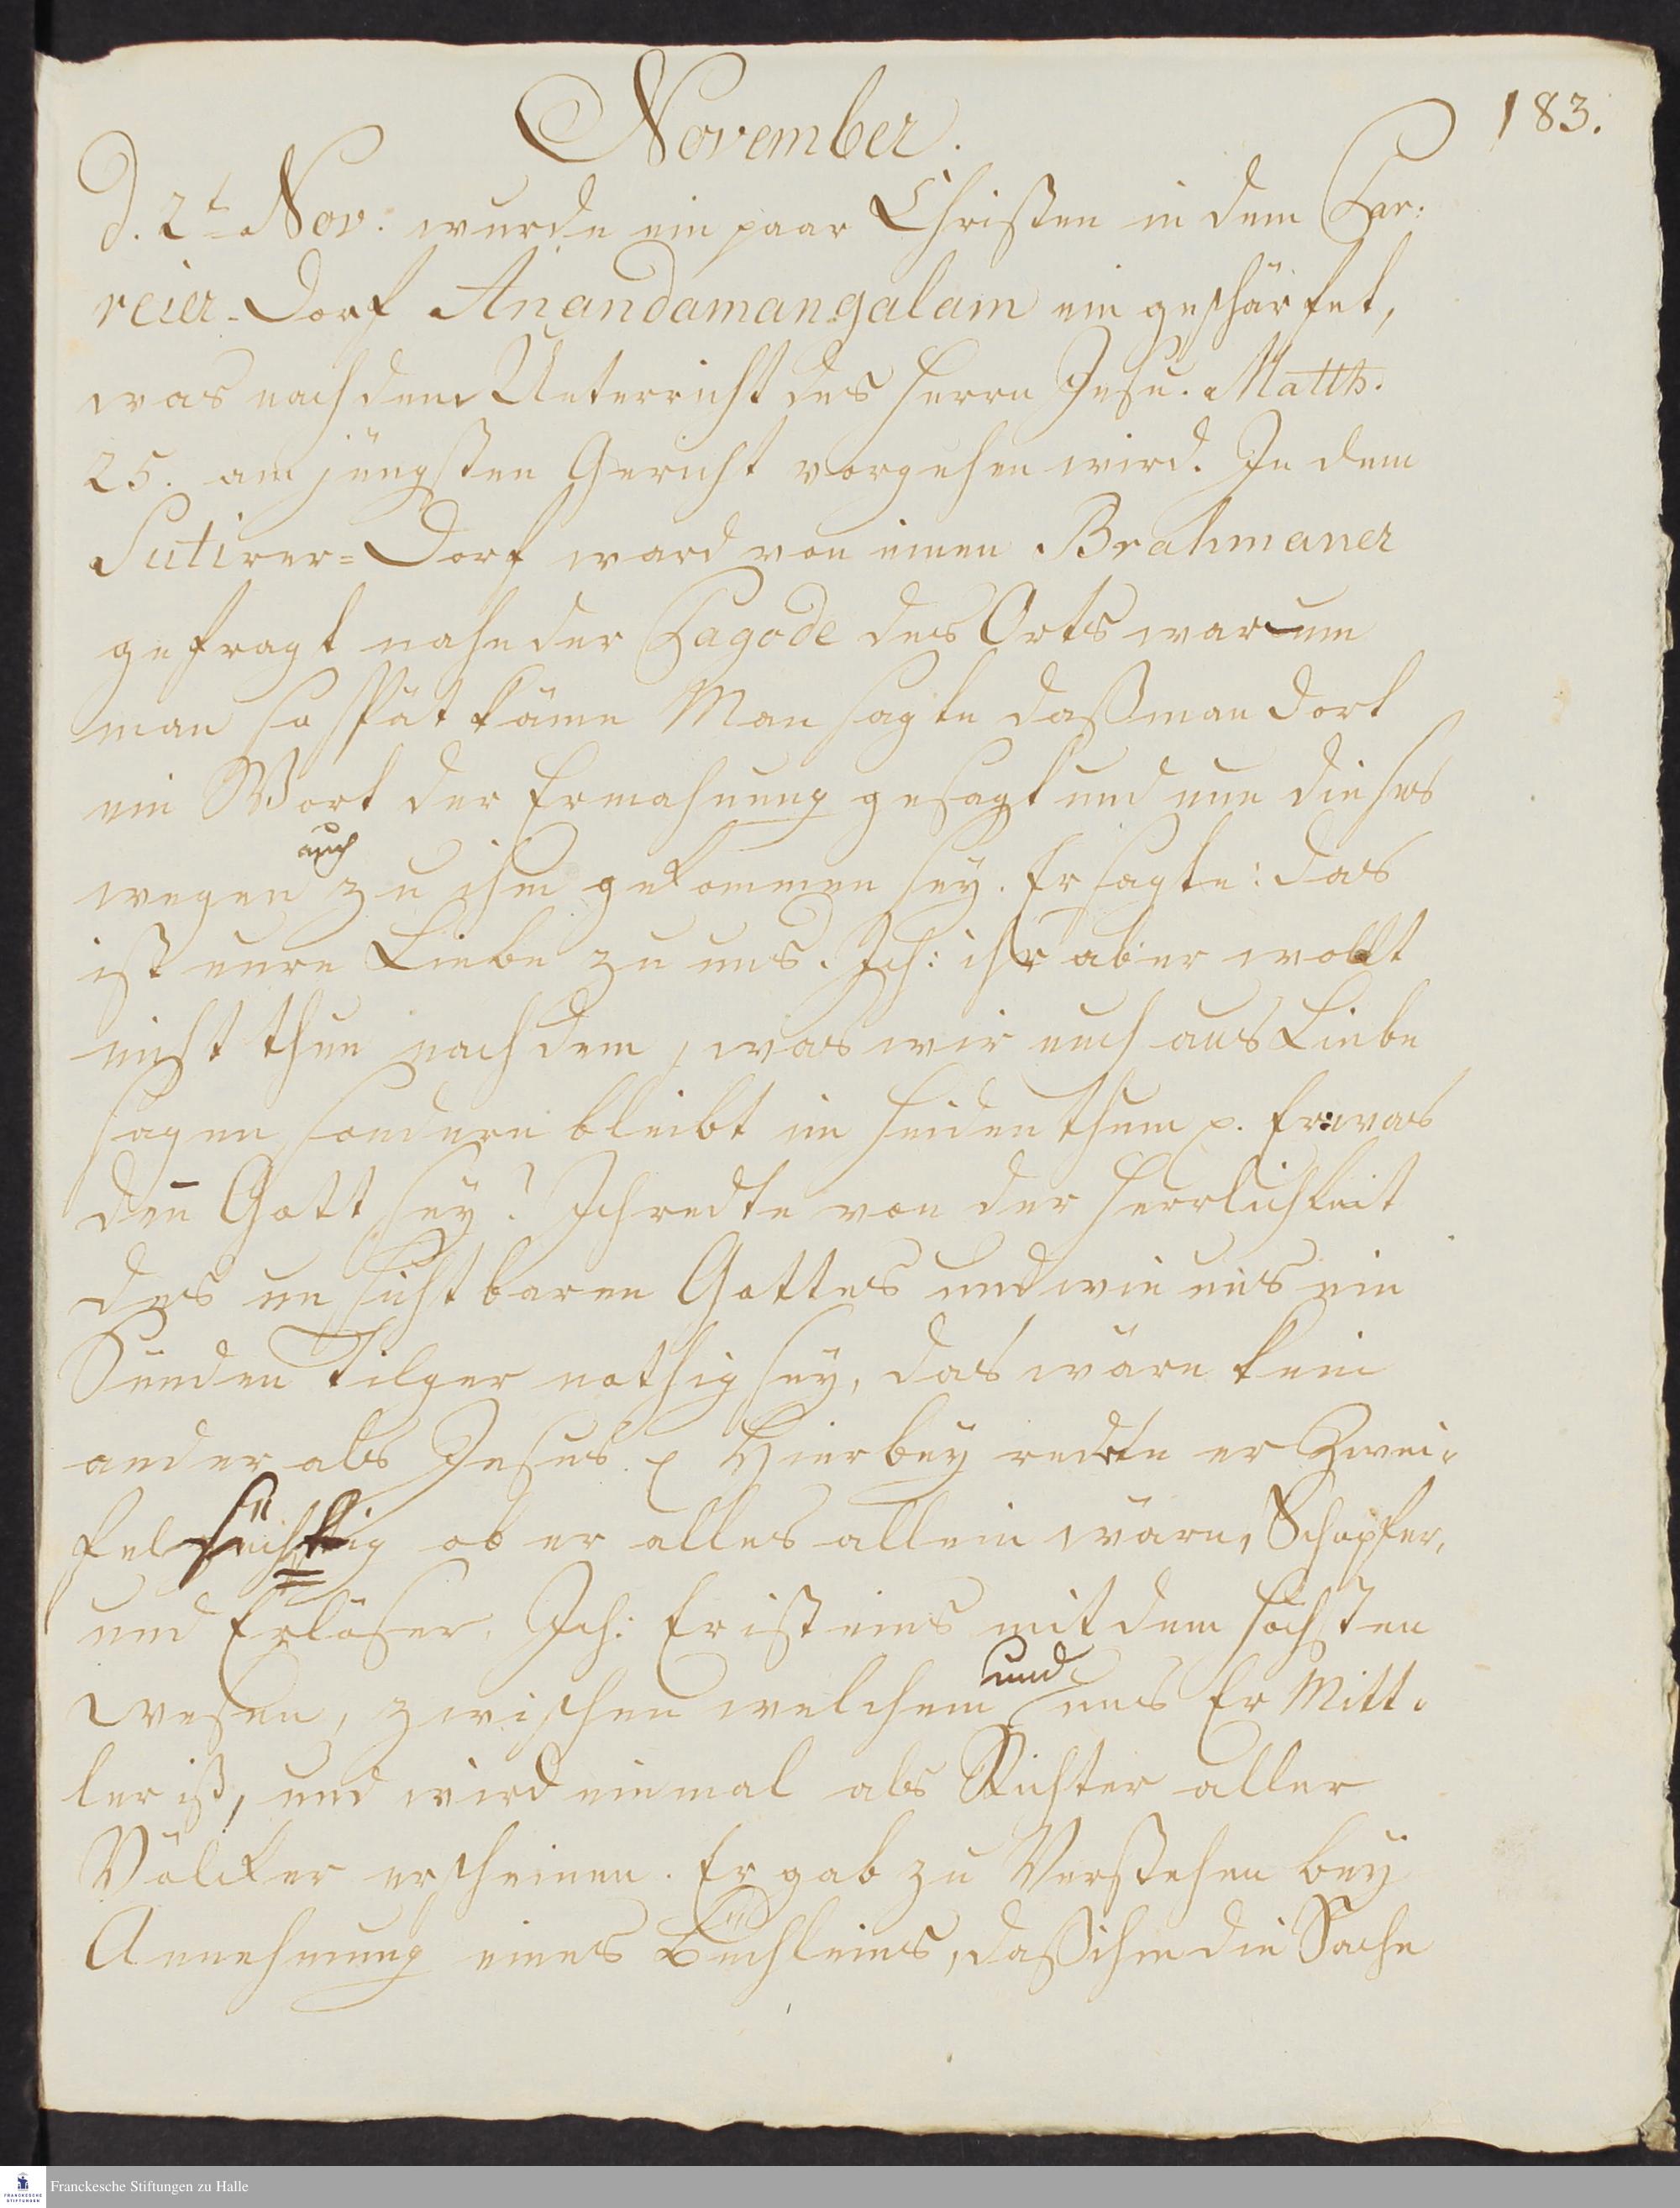 183.
November.
d. 2t Nov. wurde ein paar Christen in dem Par:
reier-Dorf Anandamangalam eingeschärfet,
was nach dem Unterricht des Herrn Jesu. Matth.
25. am jüngsten Gericht vorgehen wird. In dem
Sutirer=Dorf ward von einen Brahmaner
gefragt nahe der Pagode des Orts warum
man so spät käme Man sagte daß man dort
ein Wort der Ermahnung gesagt und nun dieses
wegen auch zu ihm gekommen sey. Er sagte: das
ist eure Liebe zu uns. Ich: ihr aber wollt
nicht thun nach dem, was wir euch aus Liebe
sagen, sondern bleibt im Heidenthum p. Er: was
den̅ Gott sey? Ich redte von der Herrlichkeit
des unsichtbaren Gottes und wie uns ein
Sünden Tilger nothig sey, das wäre kein
ander als Jesus. p Hierbey redte er Zwei:
felsüchtig ob er alles allein wäre, Schopfer,
und Erlöser. Ich: Er ist eins mit dem höchsten
Wesen, zwischen welchem und uns Er Mitt:
ler ist, und wird einmal als Richter aller
Völcker erscheinen. Er gab zu Verstehen bey
Annehmung eines Büchleins, daß ihm die Sache
Franckesche Stiftungen zu Halle
FRANCKESCHE
STIFTUNGEN